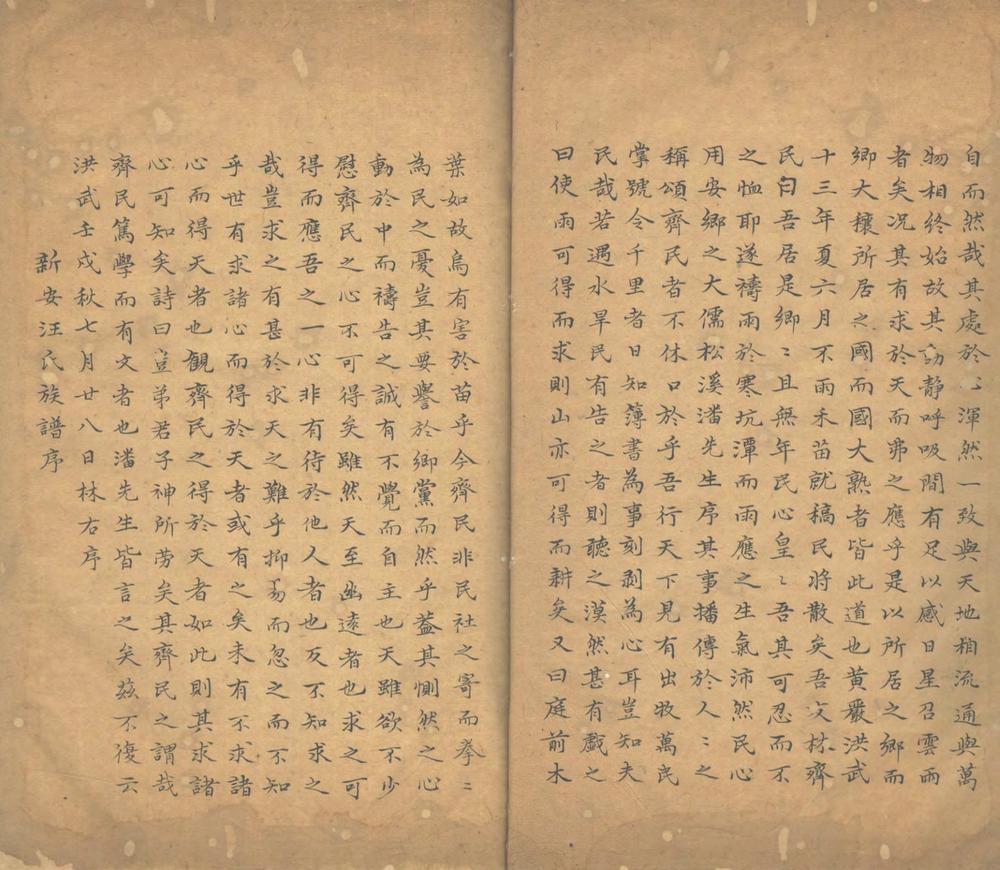 自而然哉其處於心渾然一致與天地相流通與萬
物相終始故其動靜呼吸間有足以感日星召雲雨
者矣况其有求於天而弗之應乎是以所居之鄉而
鄉大穰所居之國而國大熟者皆此道也黄巖洪武
十三年夏六月不雨禾苗就槁民將散矣吾友林齊
民曰吾居是鄉〻且無年民心皇〻吾其可忍而不
之恤耶遂禱雨於寒坑潭而雨應之生氣沛然民心
用安鄉之大儒松溪潘先生序其事播傳於人〻之
稱頌齊民者不休口於乎吾行天下見有出牧萬民
掌號令千里者日知簿書為事刻剥為心耳豈知夫
民哉若遇水旱民有告之者則聽之漠然甚有戲之
曰使雨可得而求則山亦可得而耕矣又曰庭前木
葉如故烏有害於苗乎今齊民非民社之寄而拳〻
為民之憂豈其要譽於鄉黨而然乎葢其惻然之心
動於中而禱告之誠有不覺而自主也天雖欲不少
慰齊民之心不可得矣雖然天至幽遠者也求之可
得而應吾之一心非有待於他人者也反不知求之
哉豈求之有甚於求天之難乎抑易而忽之而不知
乎世有求諸心而得於天者或有之矣未有不求諸
心而得天者也觀齊民之得於天者如此則其求諸
心可知矣詩曰豈弟君子神所劳矣其齊民之謂哉
齊民篤學而有文者也潘先生皆言之矣茲不復云
洪武壬戌秋七月廿八日林右序
新安汪氏族譜序